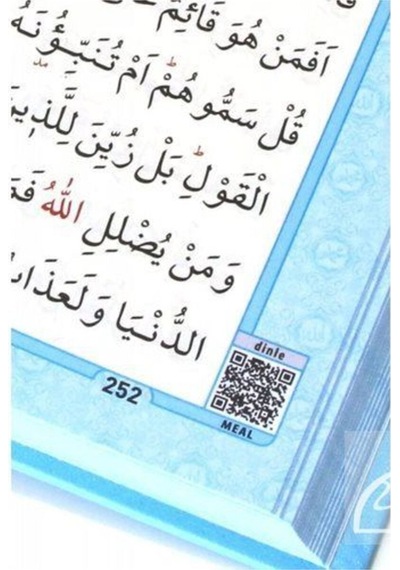 اَفَمَنْ هُوَ قَٓائِمٌ
قُلْ سَمُّوهُمْ اَمْ تُنَبِّؤُ۫نَهُ
الْقَوْلِ بَلْ زُيِّنَ لِلَّذ۪ينَ
وَمَنْ يُضْلِلِ اللّٰهُ فَمَا
الدُّنْيَا وَلَعَذَابُ
dinle
252
MEAL